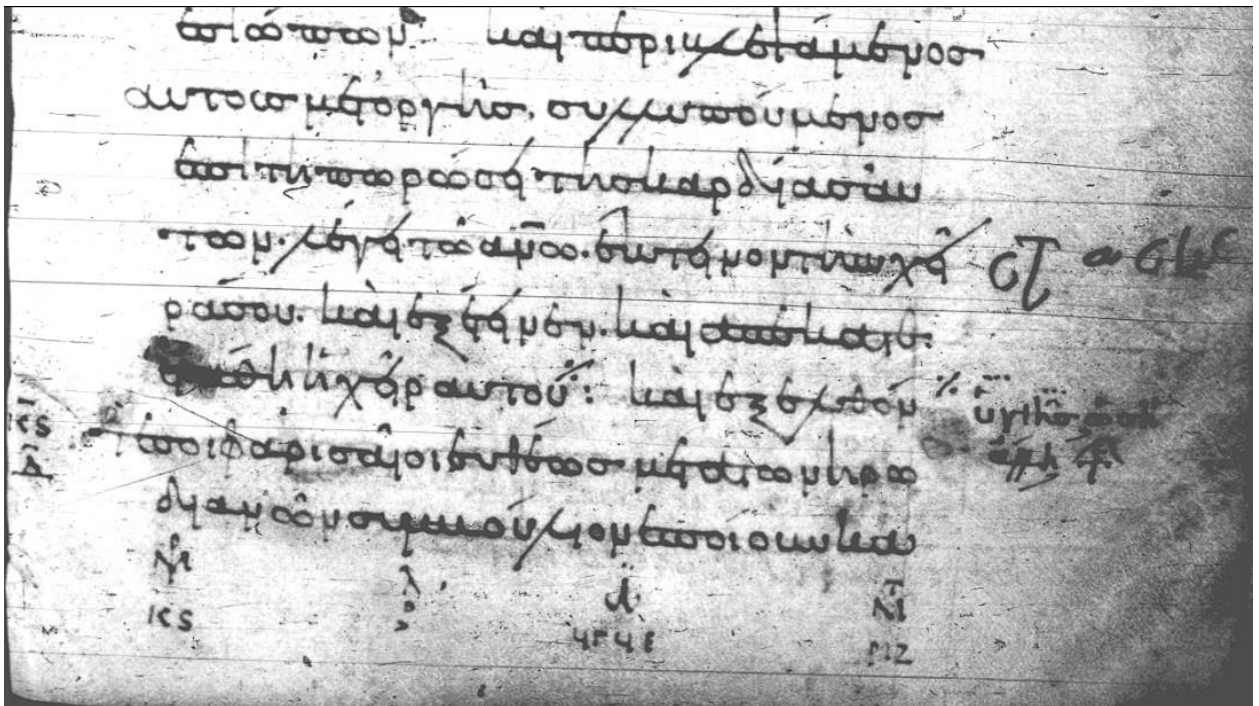 ἐσιώπων· καὶ περιβλεψάμενος
αυτοὺς μετ' ὀργῆς. συλλυπούμενος
ἐπὶ τῆ πωρώσει τῆς καρδίας αὐ
τῶν. λέγει τῶ ἀν̅ω. ἔκτεινον τὴν χεῖ
ρά σου. καὶ ἐξέτεινεν. καὶ ἀπεκατε
στάθη ἡ χεὶρ αυτοῦ: καὶ ἐξελθόν
κς
τες οἱ φαρισαῖοι ευθέως μετὰ τῶν ηρω
δ
διανῶν συμβούλιον ἐποίουν κα
κς
ριζ